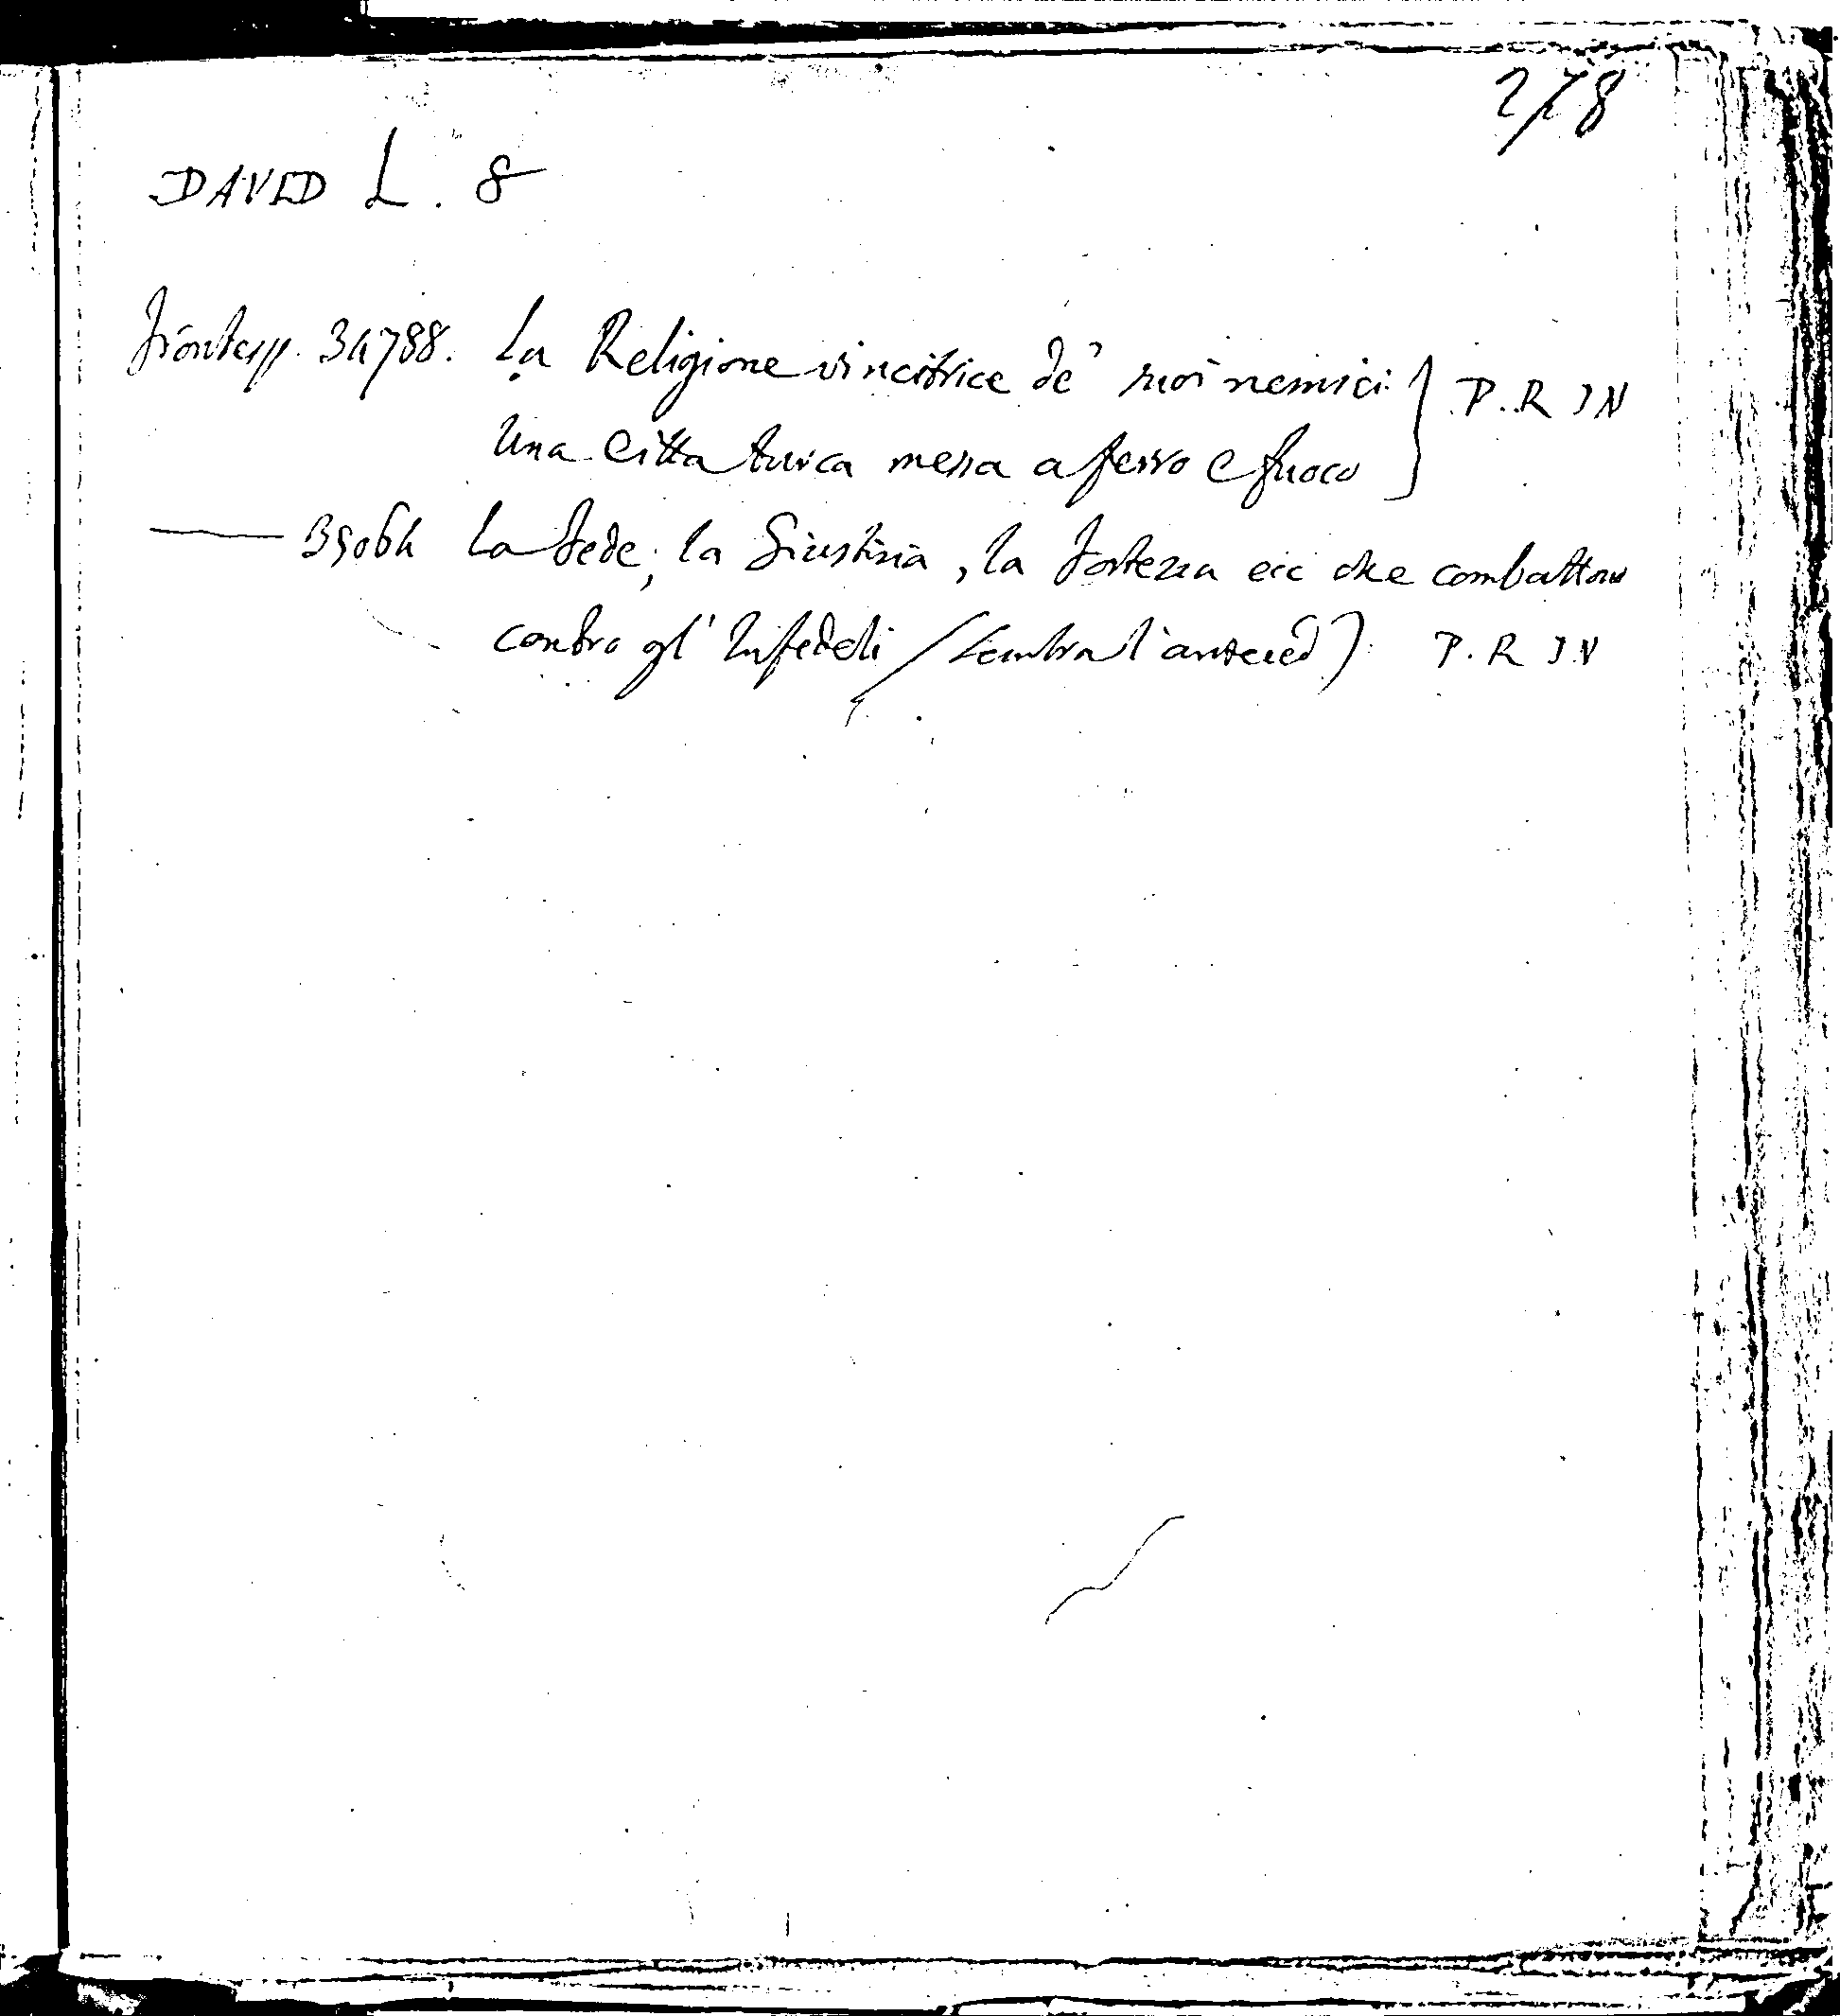 278
DAVID L. 8
Frontesp. 34788. La Religione vincitrice de' suoi nemici } P. R IN
Una Citta turca messa a ferro e fuoco
—— 35064 La Fede, la Giustizia, la Fortezza ecc che combattono
contro gl' Infedeli (sembra l'anteced) P. R IN